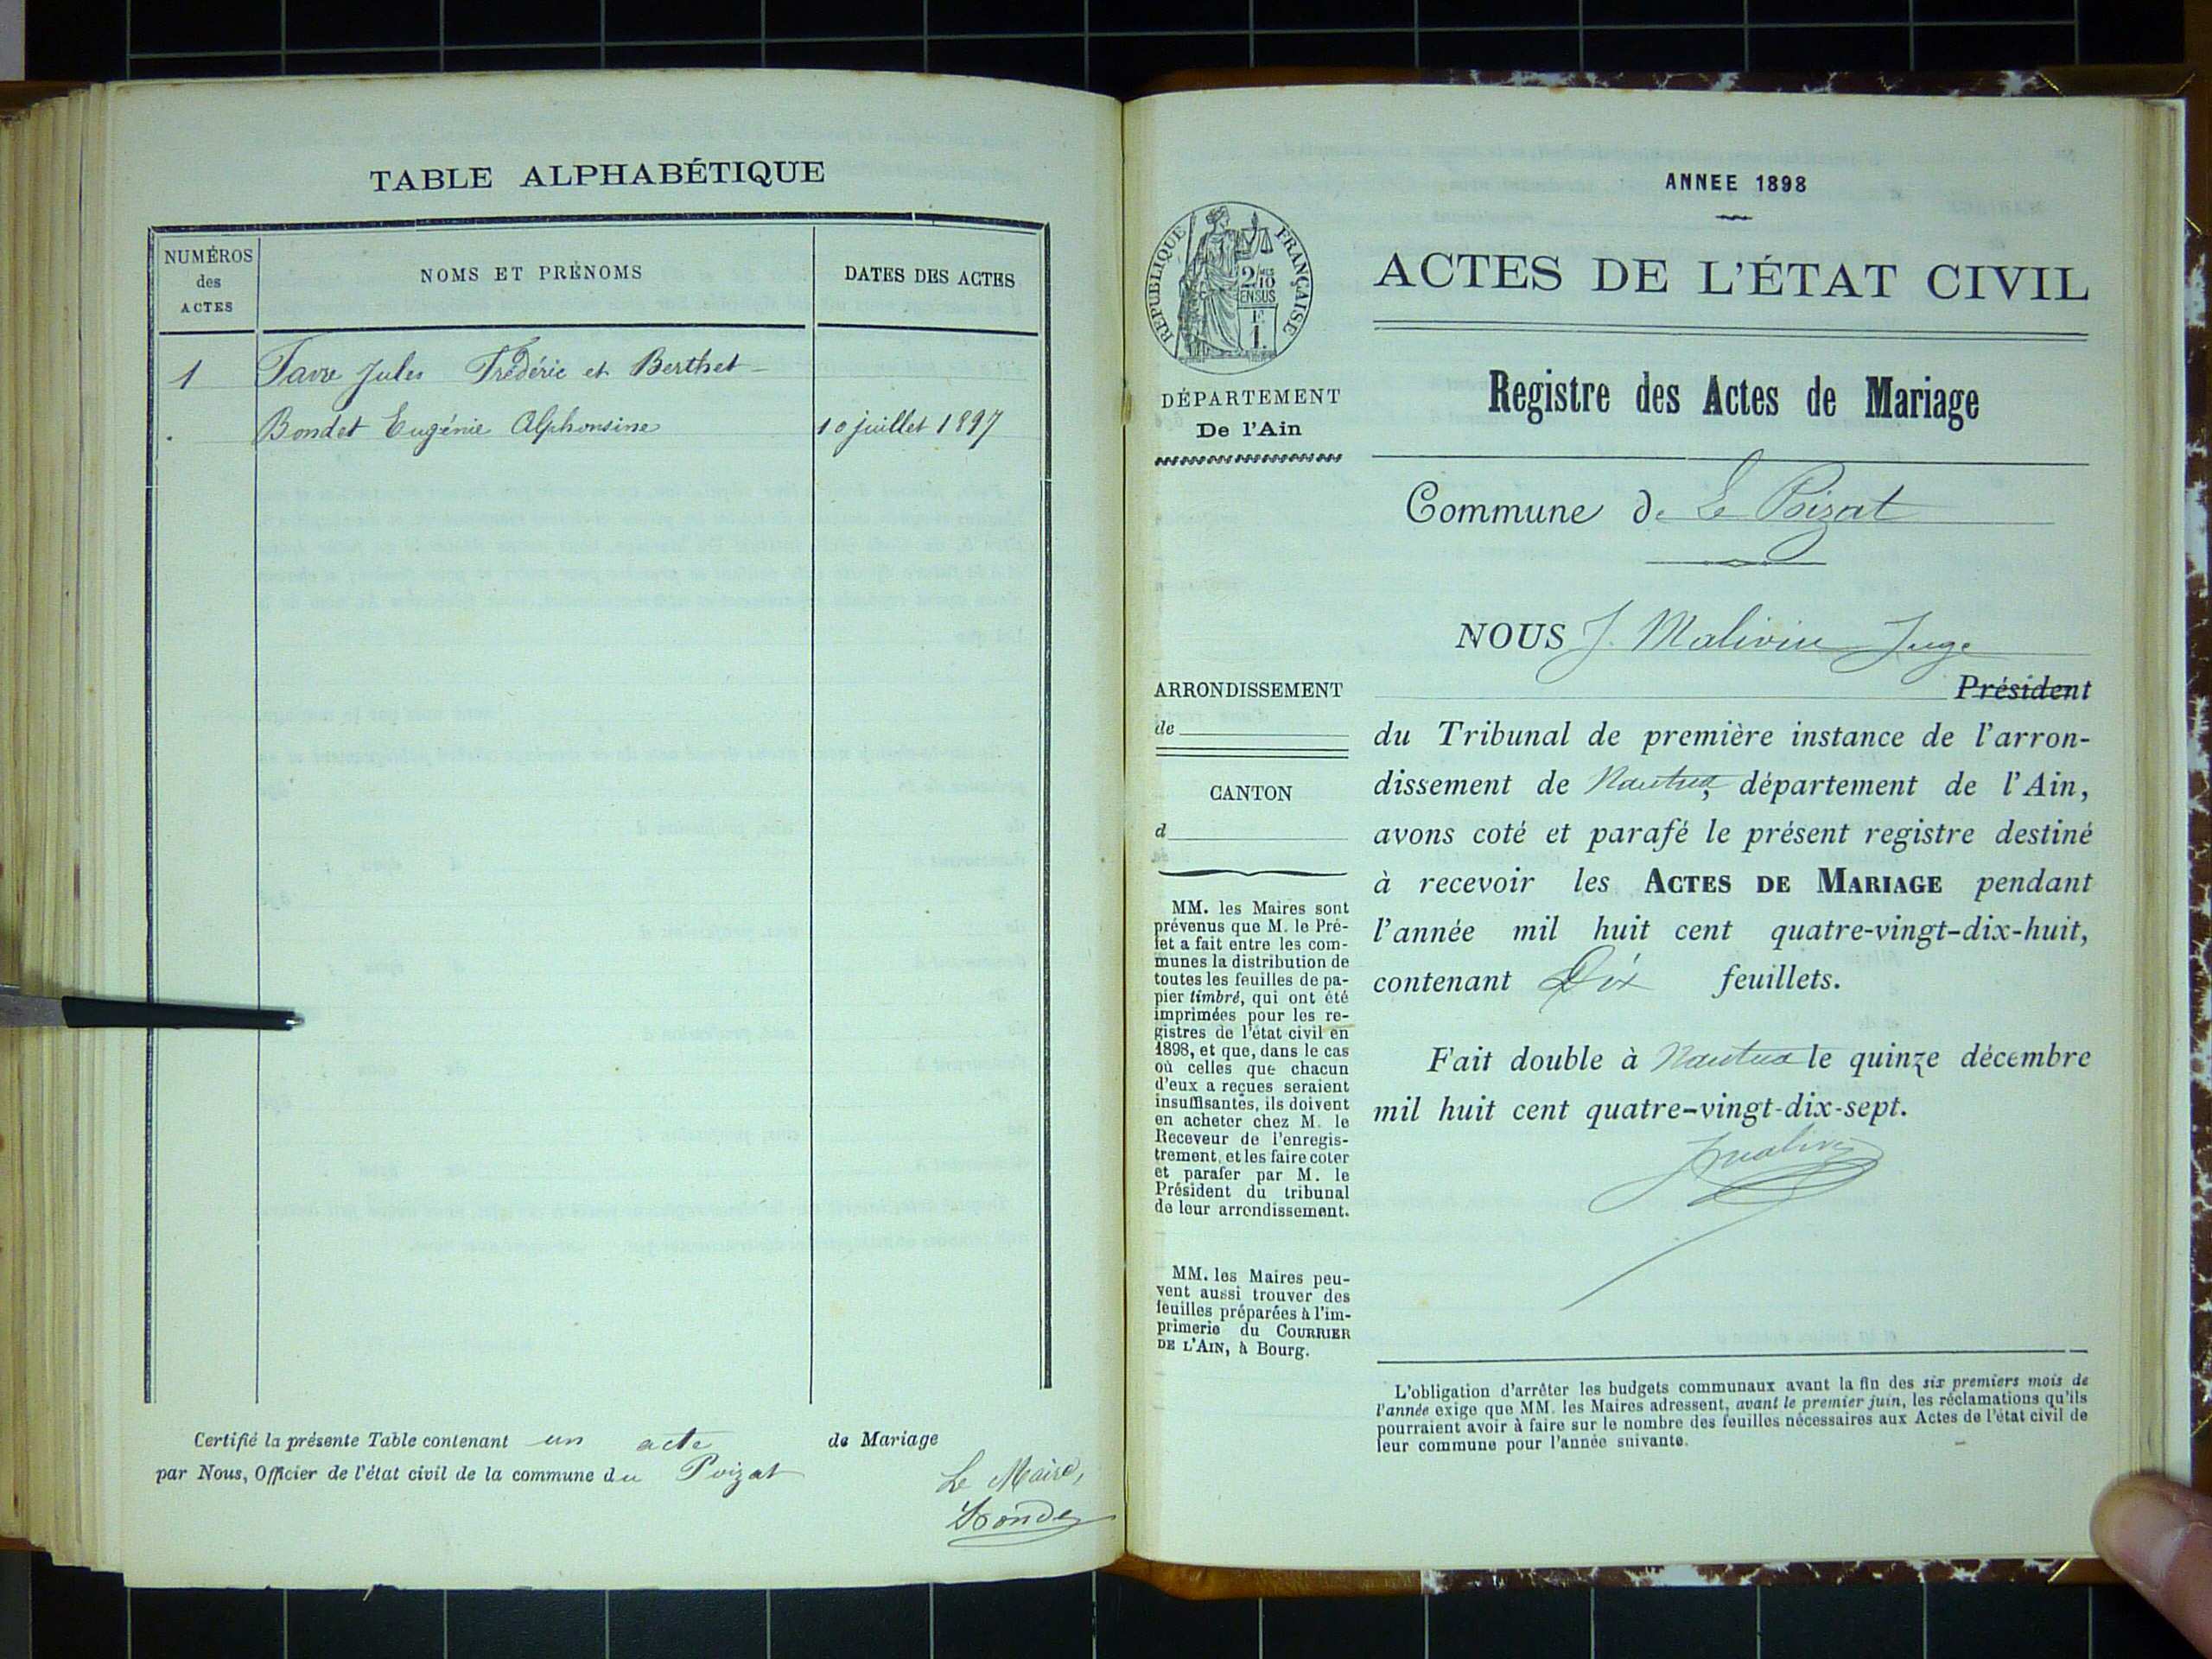 TABLE ALPHABÉTIQUE
NUMÉROS
des
ACTES
NOMS ET PRÉNOMS
DATES DES ACTES
1
Favre Jules Frédéric et Berthet-
Bondet Eugénie Alphonsine
10 juillet 1897
Certifié la présente Table contenant un acte de Mariage
par Nous, Officier de l'état civil de la commune du Poizat
Le Maire,
ANNEE 1898
RÉPUBLIQUE FRANÇAISE
2/10
EN SUS
F.
1.
DÉPARTEMENT
De l'Ain
ARRONDISSEMENT
de
CANTON
d
MM. les Maires sont
prévenus que M. le Pré-
fet a fait entre les com-
munes la distribution de
toutes les feuilles de pa-
pier timbré, qui ont été
imprimées pour les re-
gistres de l'état civil en
1898, et que, dans le cas
où celles que chacun
d'eux a reçues seraient
insuffisantes, ils doivent
en acheter chez M. le
Receveur de l'enregis-
trement, et les faire coter
et parafer par M. le
Président du tribunal
de leur arrondissement.
MM. les Maires peu-
vent aussi trouver des
feuilles préparées à l'im-
primerie du COURRIER
DE L'AIN, à Bourg.
ACTES DE L'ÉTAT CIVIL
Registre des Actes de Mariage
Commune de Le Poizat
NOUS J. Malivin Juge
Président
du Tribunal de première instance de l'arron-
dissement de Nantua, département de l'Ain,
avons coté et parafé le présent registre destiné
à recevoir les ACTES DE MARIAGE pendant
l'année mil huit cent quatre-vingt-dix-huit,
contenant Dix feuillets.
Fait double à Nantua le quinze décembre
mil huit cent quatre-vingt-dix-sept.
JMalivin
L'obligation d'arrêter les budgets communaux avant la fin des six premiers mois de
l'année exige que MM. les Maires adressent, avant le premier juin, les réclamations qu'ils
pourraient avoir à faire sur le nombre des feuilles nécessaires aux Actes de l'état civil de
leur commune pour l'année suivante.